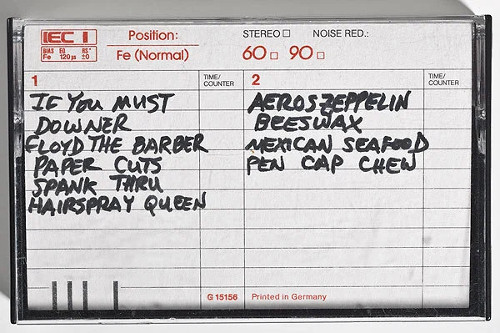 IEC I
BIAS EQ RS*
Fe 120µs ±0
Position:
Fe (Normal)
STEREO □ NOISE RED.:
60 □ 90 □
1 TIME/COUNTER
IF YOU MUST
DOWNER
FLOYD THE BARBER
PAPER CUTS
SPANK THRU
HAIRSPRAY QUEEN
2 TIME/COUNTER
AEROSZEPPELIN
BEESWAX
MEXICAN SEAFOOD
PEN CAP CHEW
G 15156 Printed in Germany